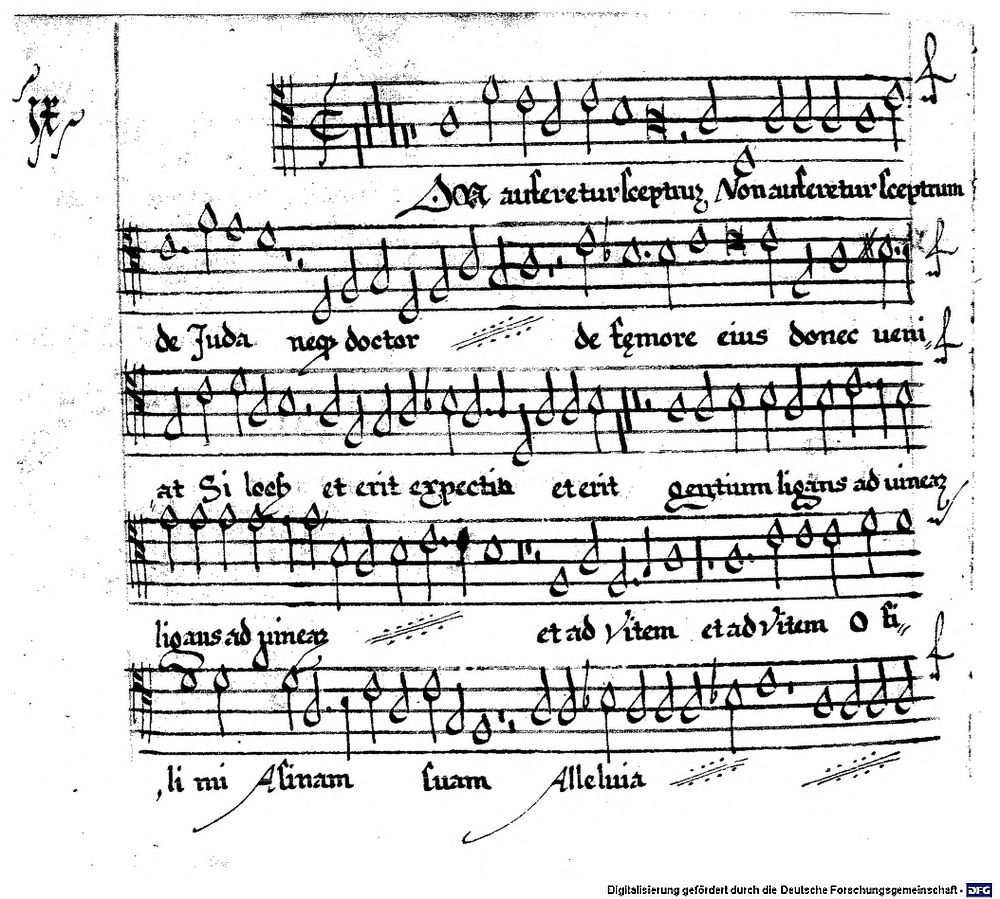 IX
Non auferetur sceptruȝ Non auferetur sceptrum
de Juda neqꝫ doctor de fęmore eius donec ueni,,
,at Si loch et erit expectatio et erit gentium ligans ad uineaȝ
ligans ad uineaȝ et ad Vitem et ad Vitem O fi,,
,li mi Asinam suam Alleluia
Digitalisierung gefördert durch die Deutsche Forschungsgemeinschaft - DFG